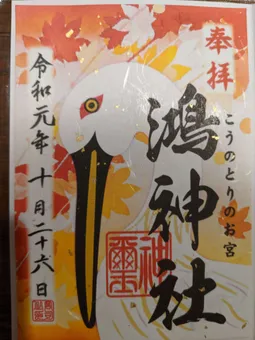 奉拝
こうのとりのお宮
鴻神社
令和元年 十月二十六日